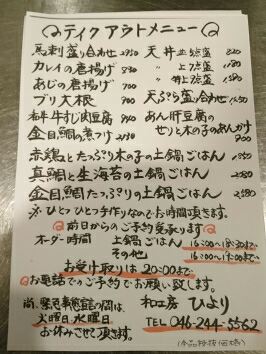 テイクアウトメニュー
馬刺し盛り合わせ
天丼 並5点盛
カレイの唐揚げ
〃 上7点盛
あじの唐揚げ 700
〃 特上
ブリ大根 900
天ぷら盛合わせ
和牛 牛すじ肉豆腐
あん肝豆腐の
金目鯛の煮つけ
せりと木の子のあんかけ
900
赤鶏とたっぷり木の子の土鍋ごはん
真鯛と生海苔の土鍋ごはん
金目鯛たっぷりの土鍋ごはん
※ひとつひとつ手作りなのでお時間頂きます。
前日からのご予約受承ります
オーダー時間 土鍋ごはん 16:00〜18:30まで
その他
お受け取りは20:00まで
お電話でのご予約でお願い致します。
尚、緊急事態宣言の間は、
火曜日、水曜日、
お休みさせて頂きます。
和工房 ひより
TEL 046-244-5562